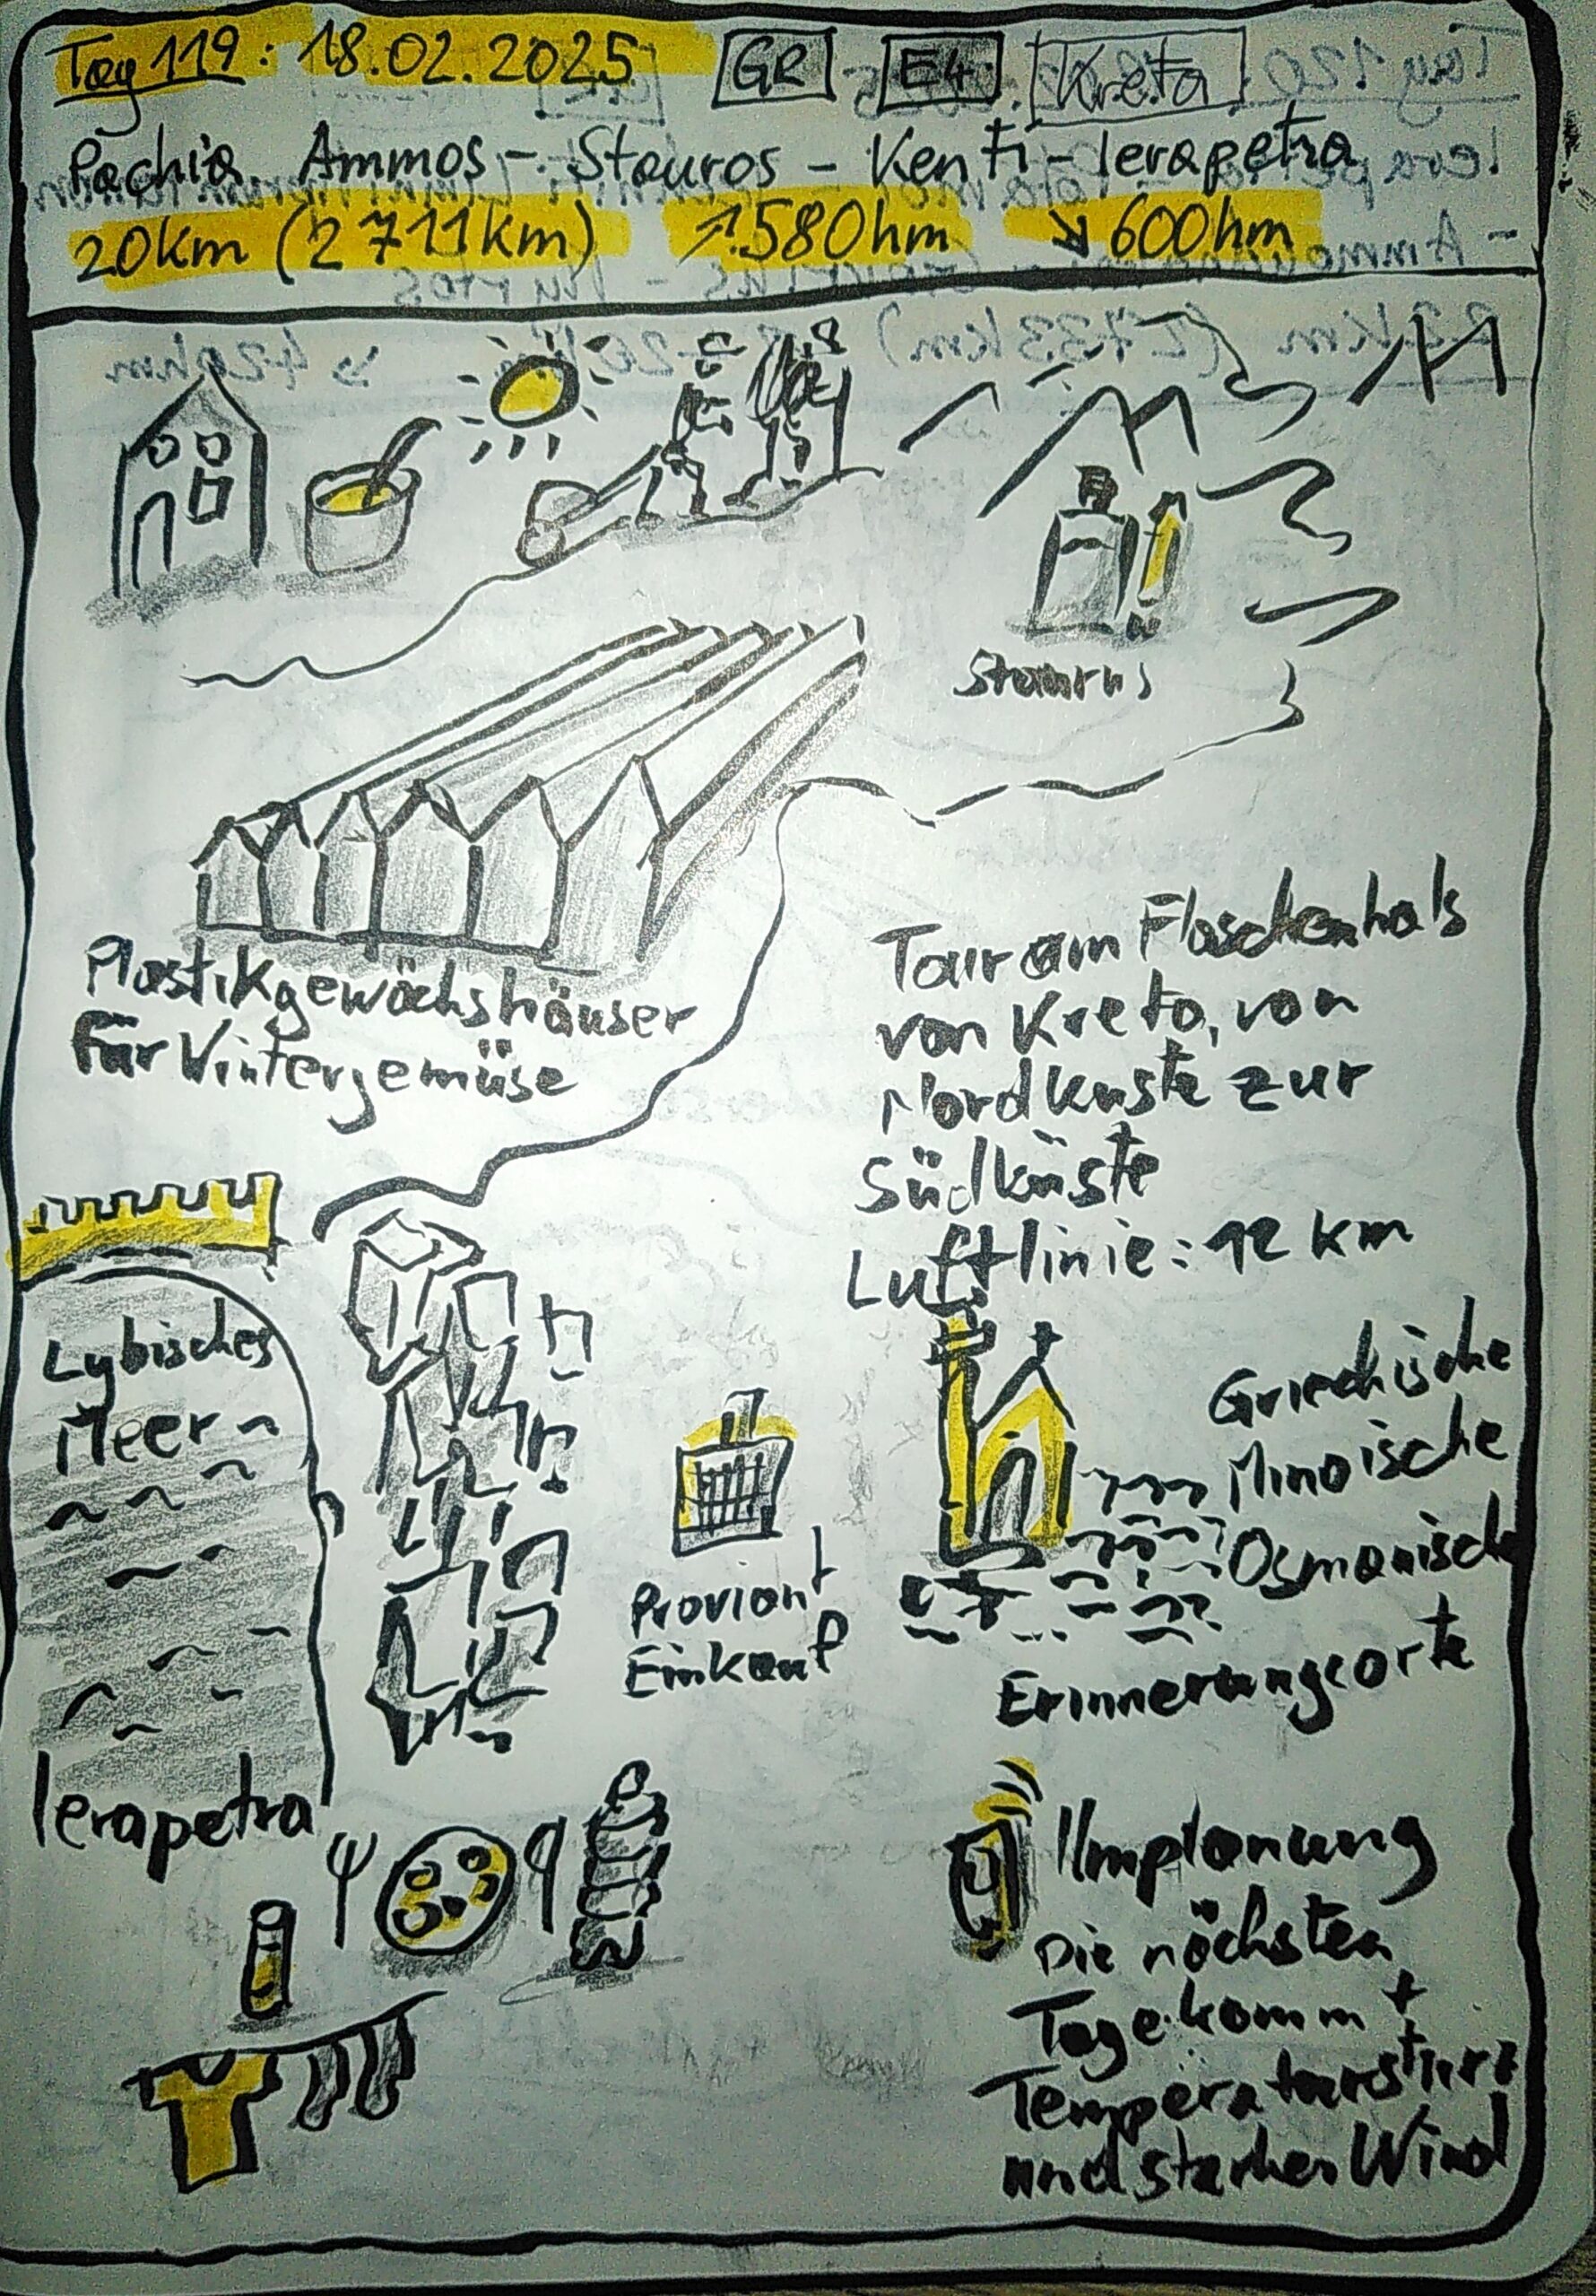 Tag 119: 18.02.2025 GR E4 Kreta
Pachia Ammos - Stavros - Kenti - Ierapetra
20km (2711km) ↗580hm ↘600hm
Stavros
Plastikgewächshäuser
für Wintergemüse
Tour am Flaschenhals
von Kreta, von
Nordküste zur
Südküste
Luftlinie: 12 km
Lybisches
Meer
Griechische
Minoische
Osmanische
Erinnerungsorte
Proviant
Einkauf
Ierapetra
Umplanung
Die nächsten
Tage kommt
Temperatursturz
und starker Wind